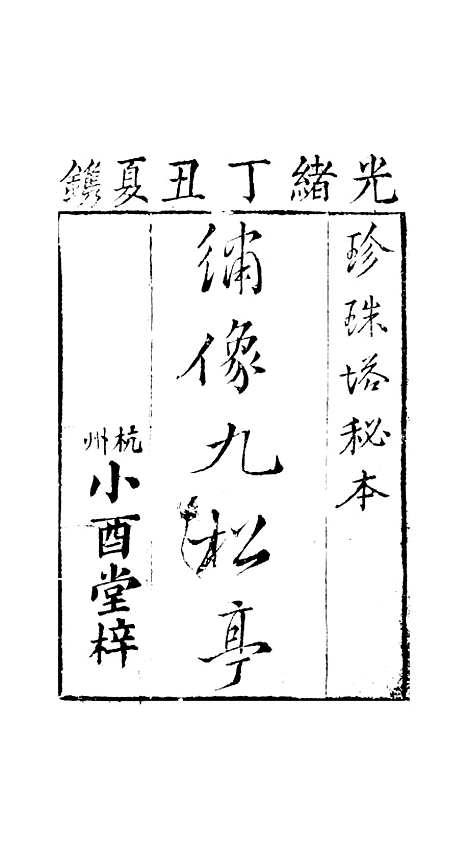 光緒丁丑夏鐫
珍珠塔秘本
繡像九松亭
杭州
小酉堂梓